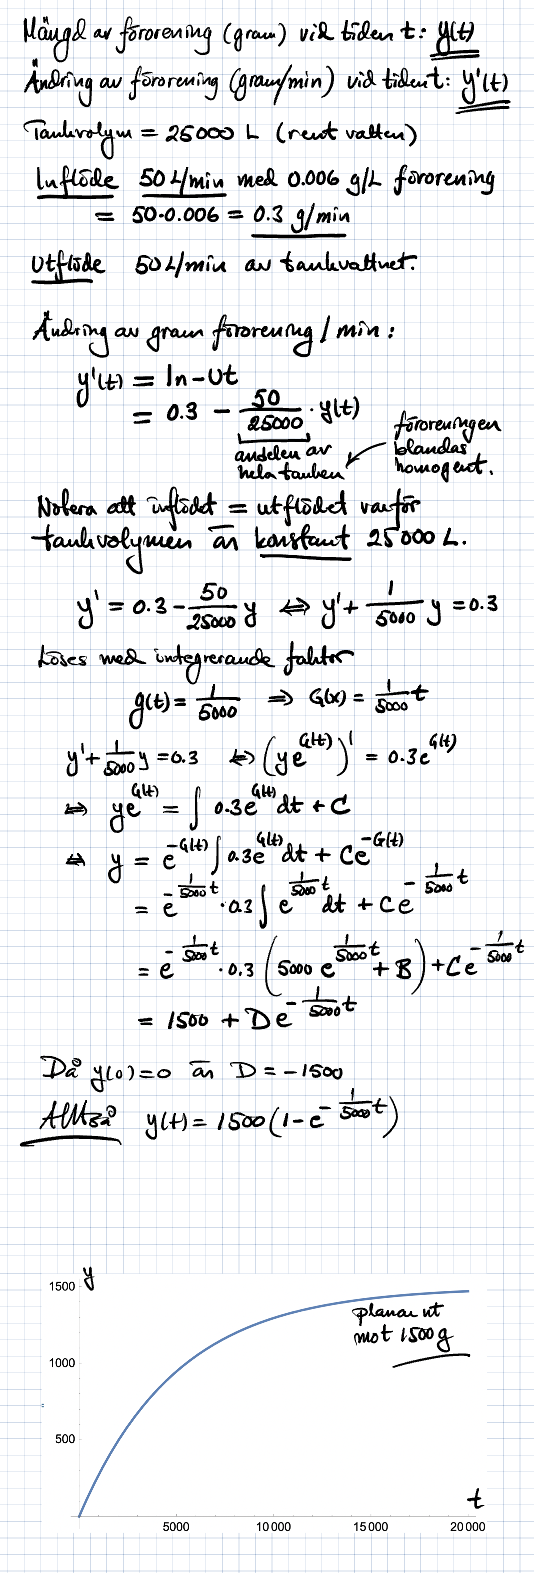 Mängd av förorening (gram) vid tiden t: y(t)
Ändring av förorening (gram/min) vid tiden t: y'(t)
Tankvolym = 25000 L (rent vatten)
Inflöde 50 L/min med 0.006 g/L förorening
= 50·0.006 = 0.3 g/min
Utflöde 50 L/min av tankvattnet.
Ändring av gram förorening / min:
y'(t) = In - Ut
= 0.3 - 50/25000 · y(t)
andelen av
hela tanken
föroreningen
blandas
homogent.
Notera att inflödet = utflödet varför
tankvolymen är konstant 25000 L.
y' = 0.3 - 50/25000 y ⇔ y' + 1/5000 y = 0.3
Löses med integrerande faktor
g(t) = 1/5000 ⇒ G(x) = 1/5000 t
y' + 1/5000 y = 0.3 ⇔ (ye^G(t))' = 0.3e^G(t)
⇔ ye^G(t) = ∫ 0.3e^G(t) dt + C
⇔ y = e^-G(t) ∫ 0.3e^G(t) dt + Ce^-G(t)
= e^(-1/5000 t) · 0.3 ∫ e^(1/5000 t) dt + Ce^(-1/5000 t)
= e^(-1/5000 t) · 0.3 (5000 e^(1/5000 t) + B) + Ce^(-1/5000 t)
= 1500 + De^(-1/5000 t)
Då y(0) = 0 är D = -1500
Alltså y(t) = 1500(1 - e^(-1/5000 t))
y
1500
planar ut
mot 1500 g
1000
500
t
5000 10000 15000 20000